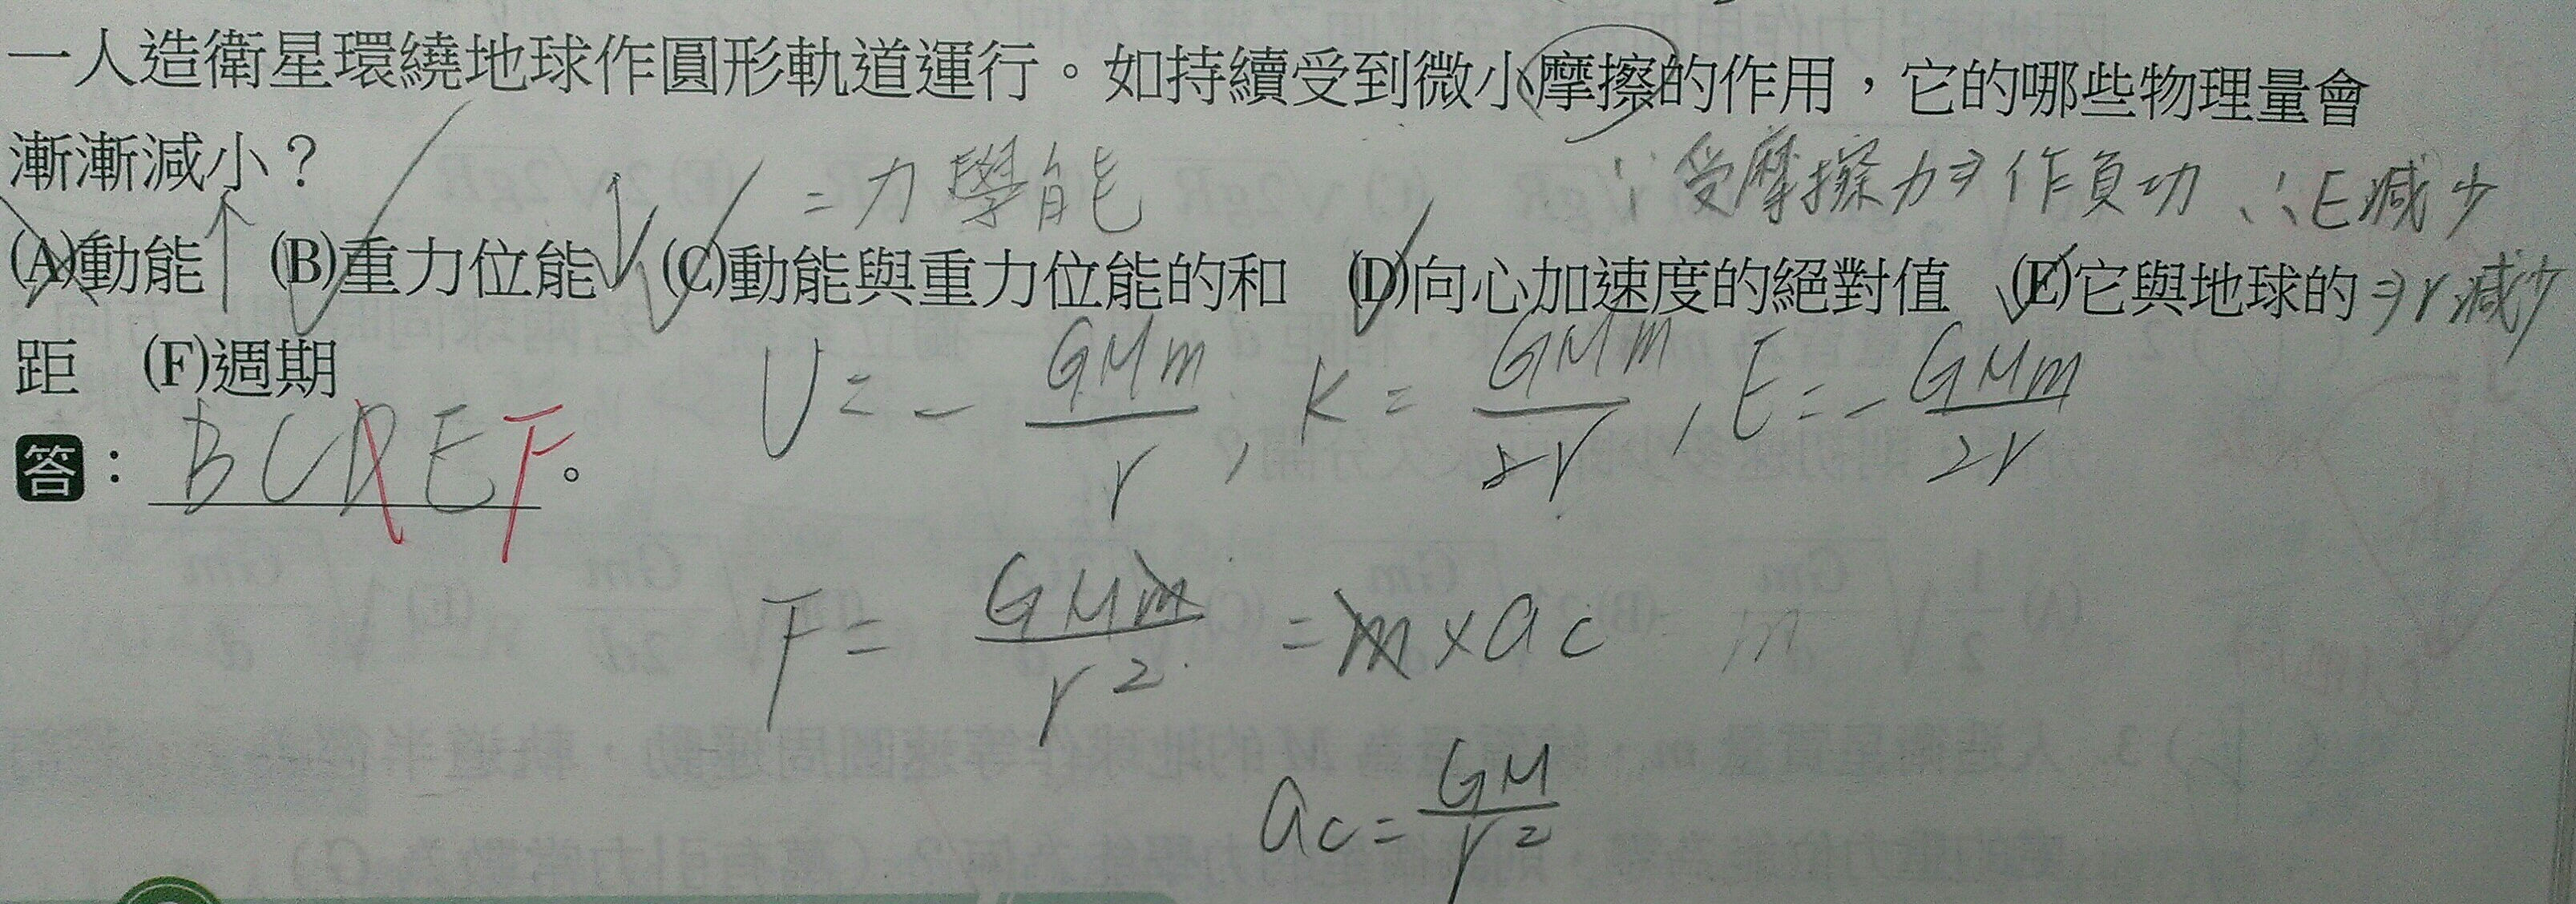 一人造衛星環繞地球作圓形軌道運行。如持續受到微小摩擦的作用，它的哪些物理量會
漸漸減小？
=力學能
∵受摩擦力⇒作負功 ∴E減少
(A)動能↑ (B)重力位能↓ (C)動能與重力位能的和 (D)向心加速度的絕對值 (E)它與地球的
⇒r減少
距 (F)週期
U = - GMm/r , K = GMm/2r , E = - GMm/2r
答： BCDEF。
F = GMm/r² = m × ac = m
ac = GM/r²